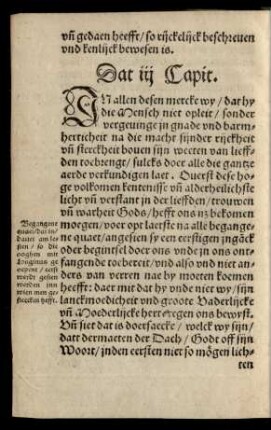 vñ gedaen heefft / so rijckelijck beschreuen
vnd kenlijck bewesen is.
Dat iij Capit.
IN allen desen mercke wy / dat hy
die Mensch niet opleit / sonder
vergeuinge in gnade vnd barm-
herticheit na die macht sijnder rijckheit
vñ sterckheit bouen sijn weeten van lieff-
den toebrengt / sulcks doer alle die gantze
aerde verkundigen laet. Ouerst dese ho-
ge volkomen kentenisse vñ alderheilichste
licht vñ verstant in der lieffden / trouwen
vñ warheit Gods / hefft ons nz bekomen
moegen / voer opt laerste na alle begange-
ne quaet / angesien sy een eerstigen
oder beginsel doer ons vnde in ons ont-
fangende toebreect / vnd also vnd niet an-
ders van verren nae by moeten koemen
heefft: daer mit dat hy vnde niet wy / sijn
lanckmoedicheit vnd groote Vaderlijcke
vñ Moederlijcke herte tegen ons bewyst.
Vñ siet dat is doersaecke / welck wy sijn /
datt dermaeten der Dach / Godt off sijn
Woort / inden eersten niet so mögen lich-
ten
Begangene
quaet / dat in-